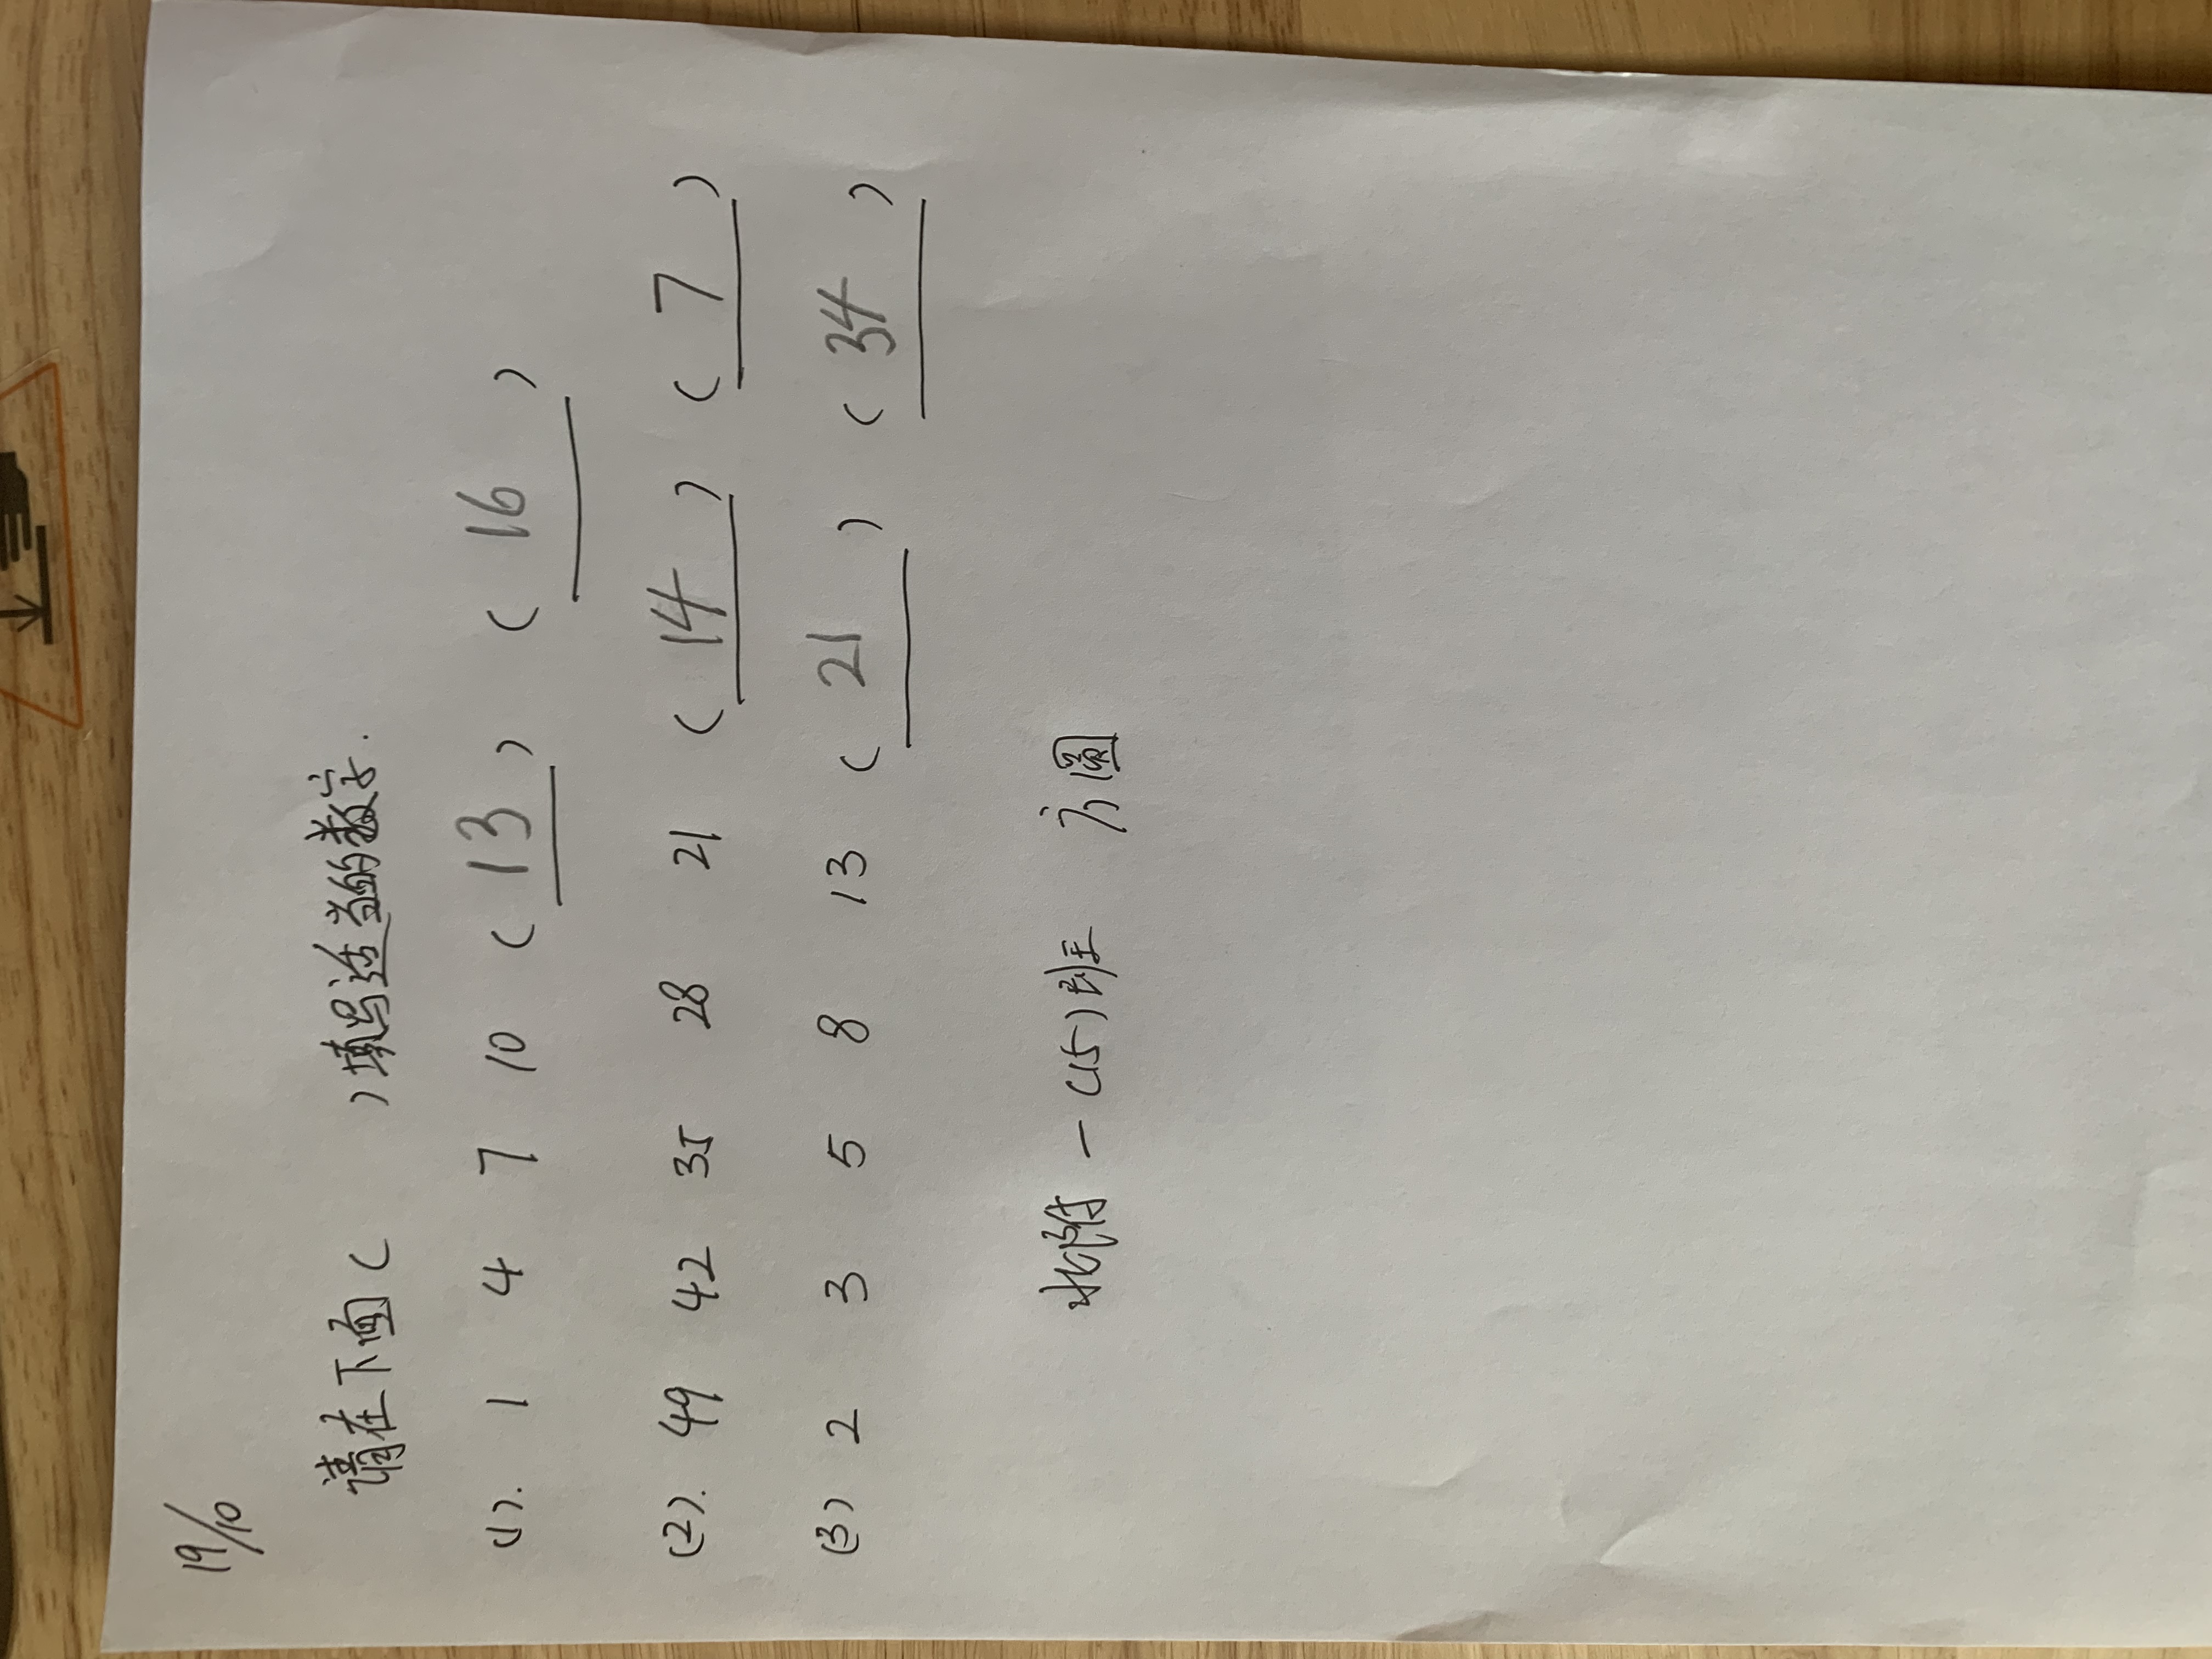 19/10
请在下面( )填写适当的数字.
(1). 1 4 7 10 (13) (16)
(2). 49 42 35 28 21 (14) (7)
(3) 2 3 5 8 13 (21) (34)
北附一(15)班 方圆